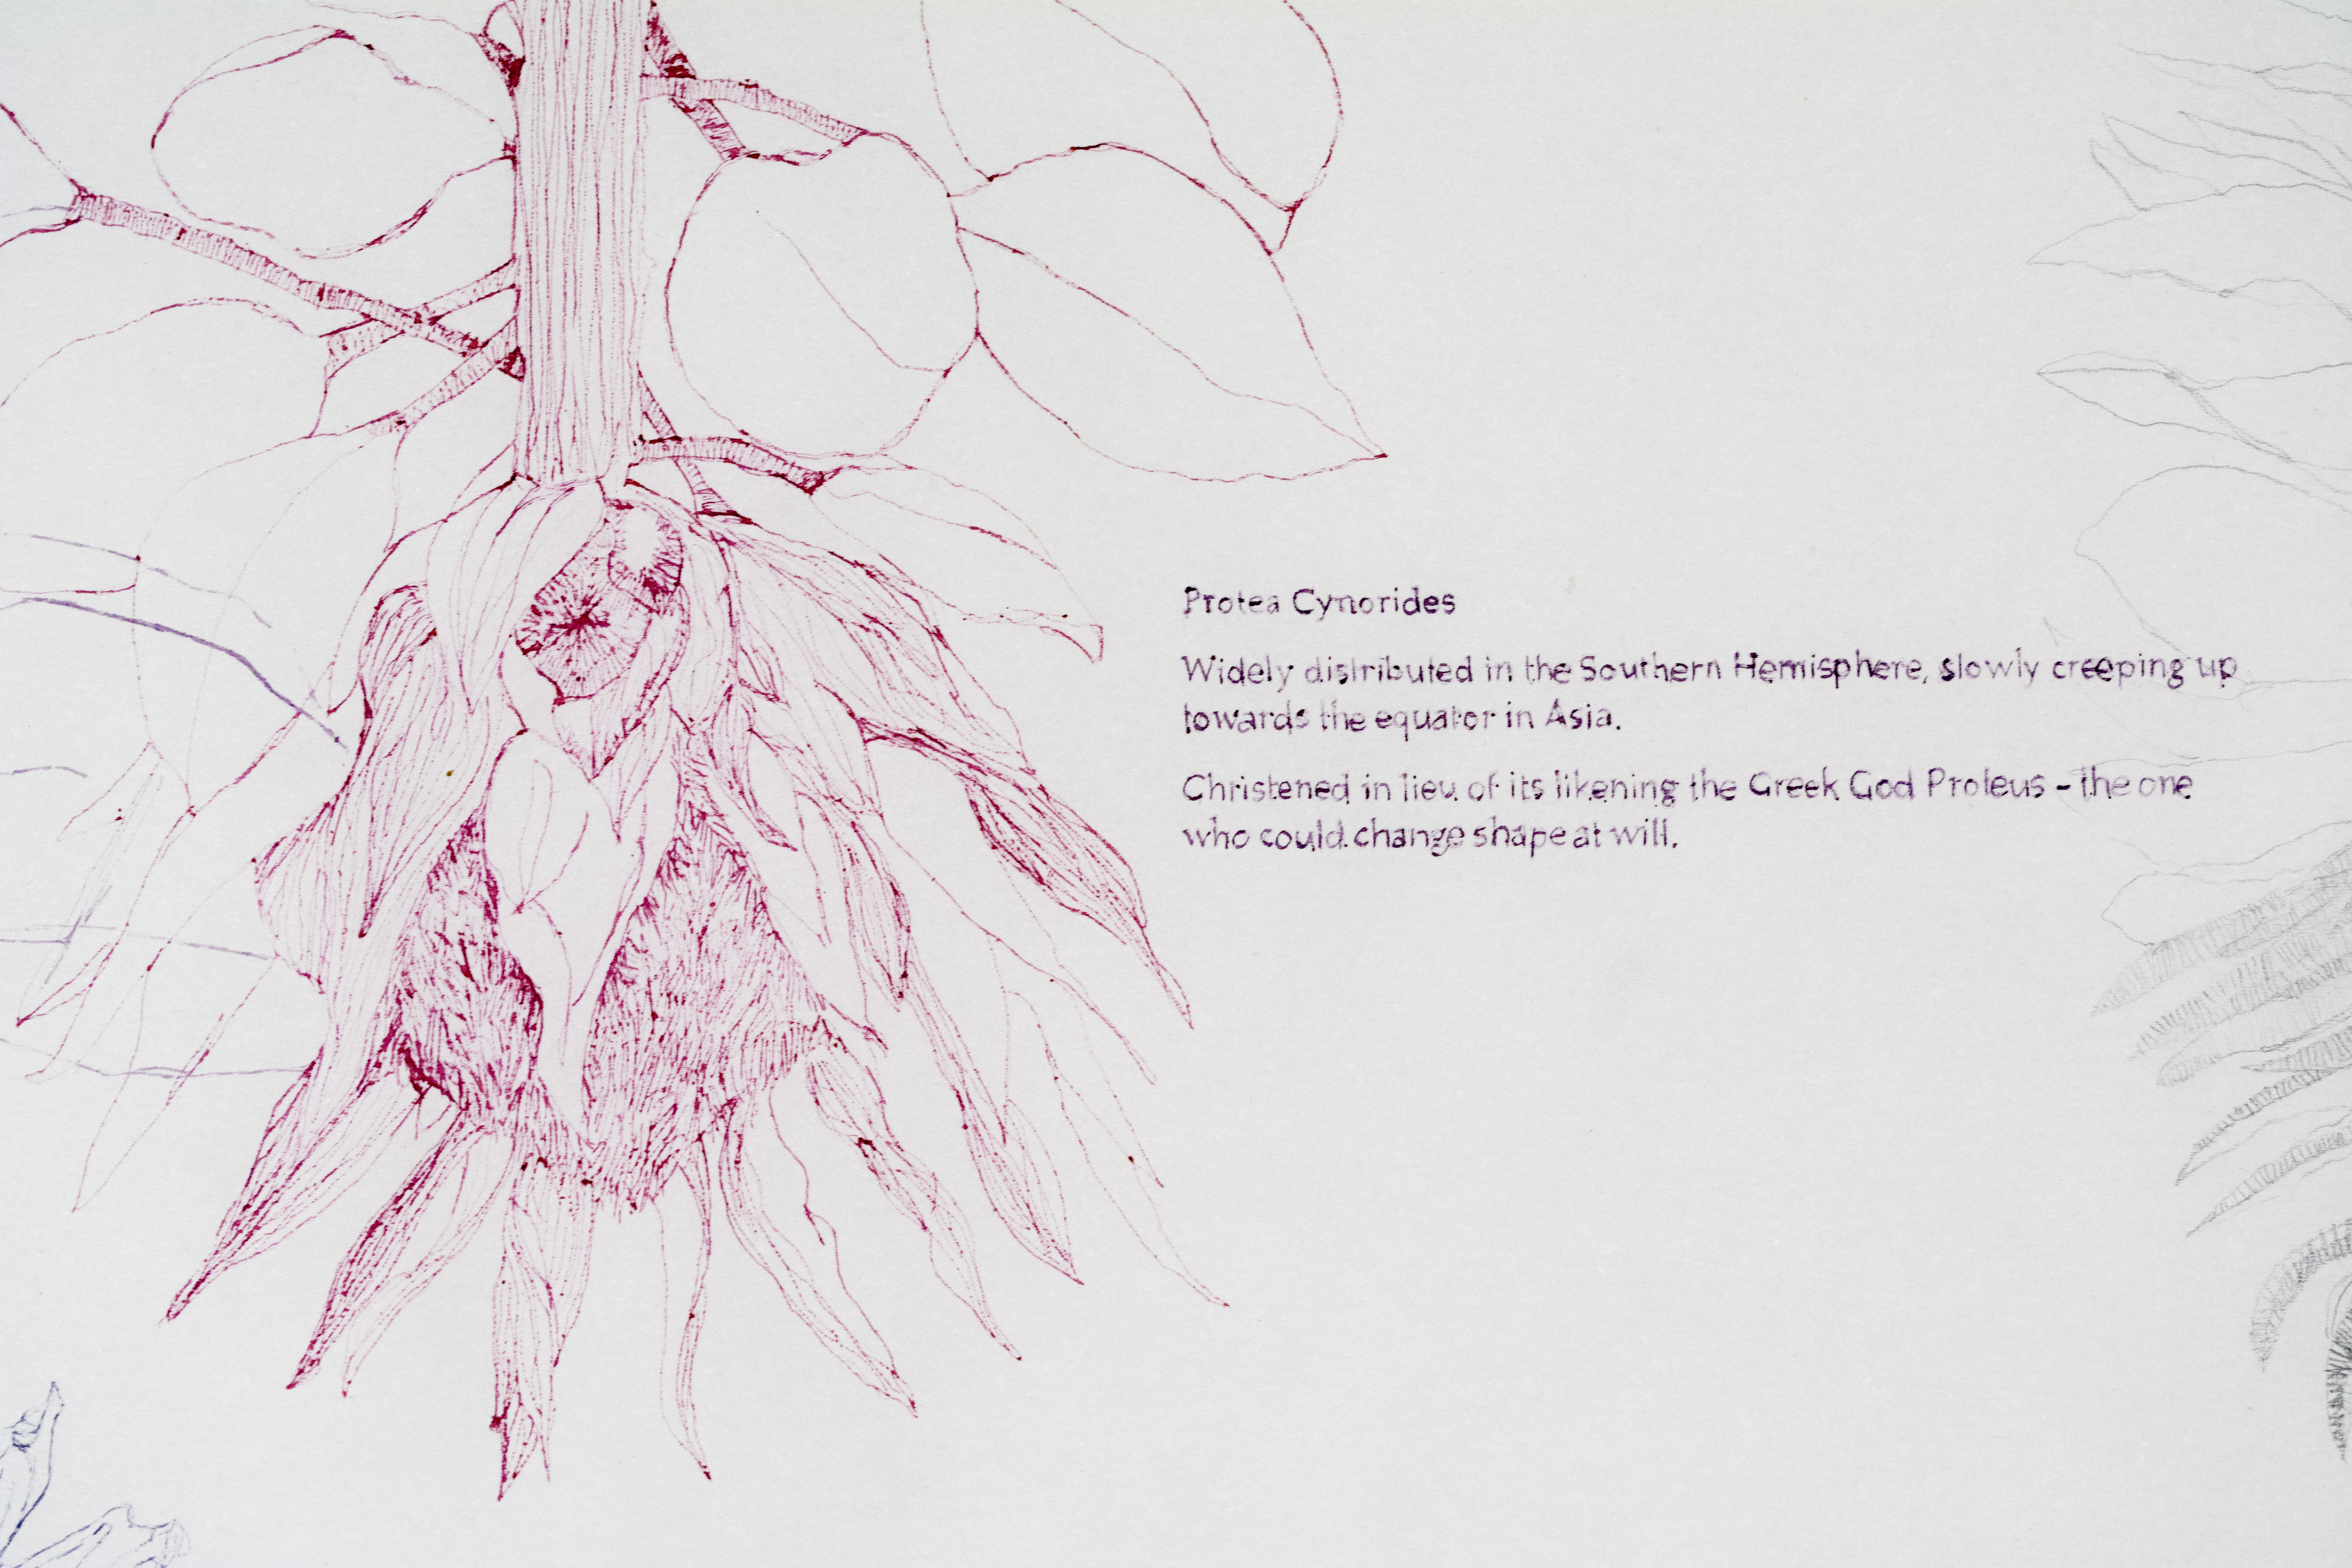 Protea Cynorides
Widely distributed in the Southern Hemisphere, slowly creeping up
towards the equator in Asia.
Christened in lieu of its likening the Greek God Proteus - the one
who could change shape at will.